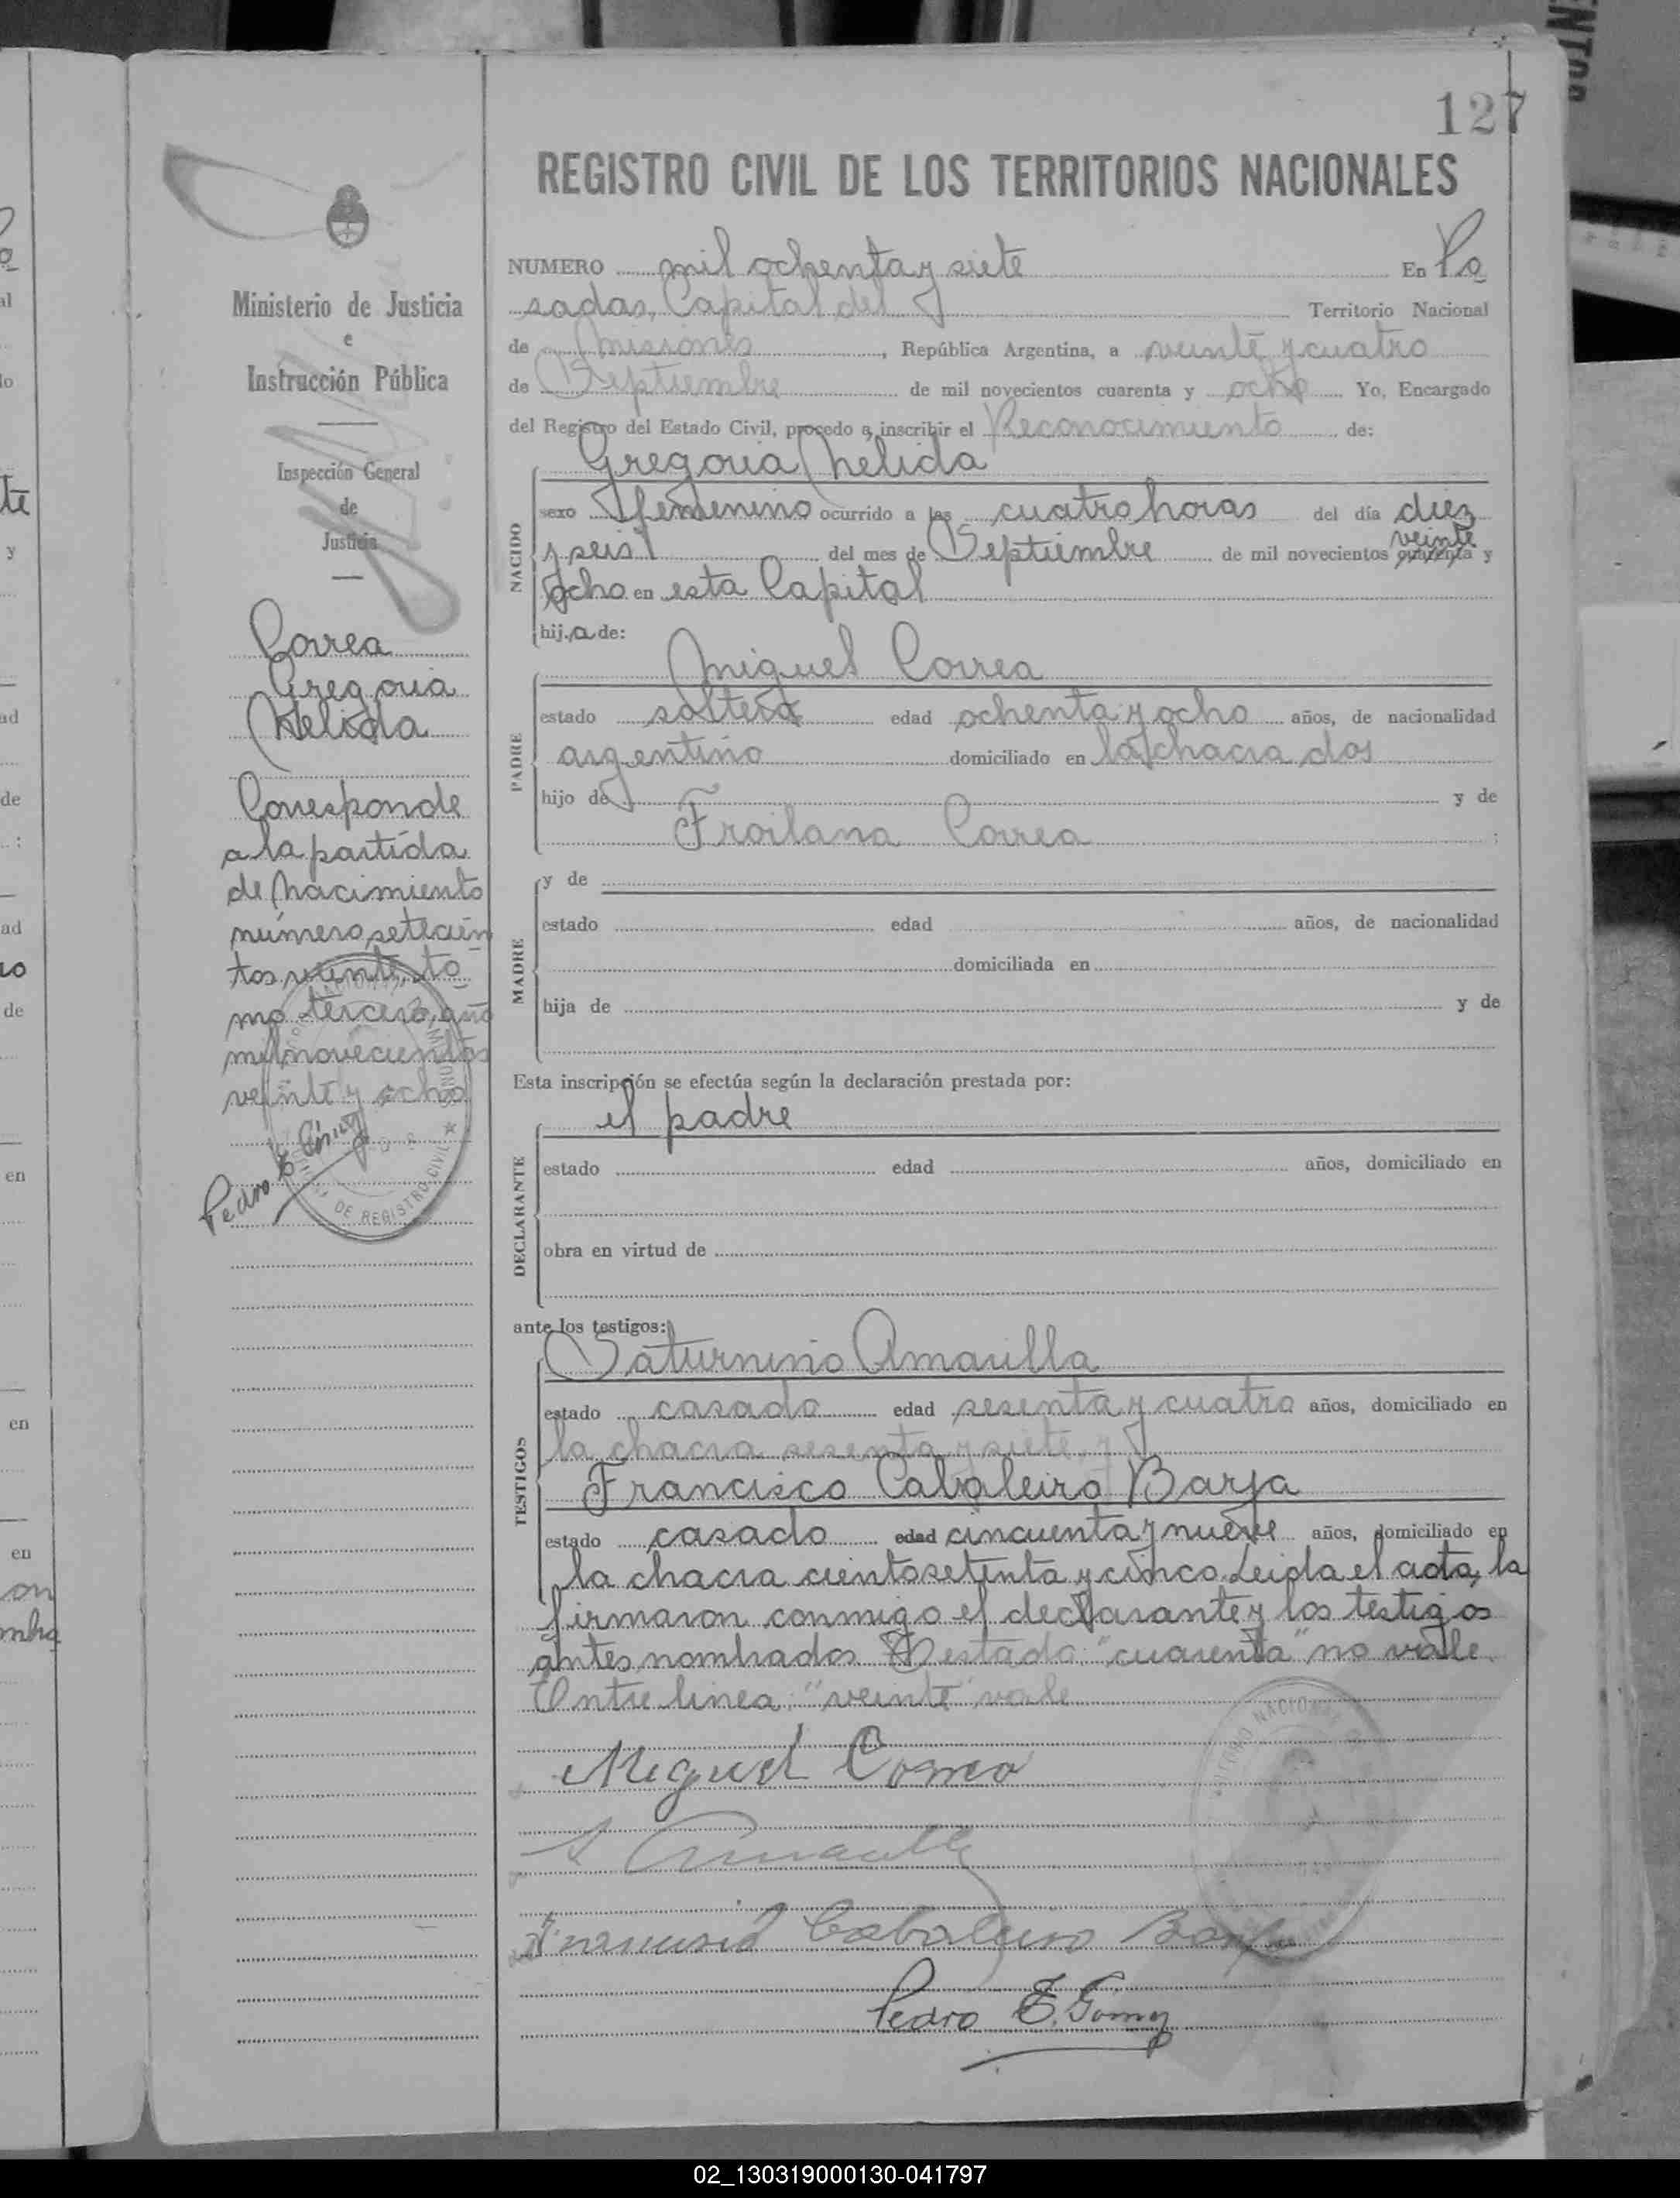 127
REGISTRO CIVIL DE LOS TERRITORIOS NACIONALES
NUMERO mil ochenta y siete En Po
sadas, Capital del Territorio Nacional
de Misiones, República Argentina, a veinte y cuatro
de Septiembre de mil novecientos cuarenta y ocho Yo, Encargado
del Registro del Estado Civil, procedo a inscribir el Reconocimiento de:
Gregoria Nelida
NACIDO
sexo femenino ocurrido a las cuatro horas del día diez
veinte
y seis del mes de Septiembre de mil novecientos cuarenta y
ocho en esta Capital
hija de:
Miguel Correa
PADRE
estado soltero edad ochenta y ocho años, de nacionalidad
argentino domiciliado en la chacra dos
hijo de y de
Froilana Correa
MADRE
y de
estado edad años, de nacionalidad
domiciliada en
hija de y de
Esta inscripción se efectúa según la declaración prestada por:
el padre
DECLARANTE
estado edad años, domiciliado en
obra en virtud de
ante los testigos:
Saturnino Amarilla
TESTIGOS
estado casado edad sesenta y cuatro años, domiciliado en
la chacra sesenta y siete y
Francisco Cabaleiro Barja
estado casado edad cincuenta y nueve años, domiciliado en
la chacra ciento setenta y cinco. Leida el acta, la
firmaron conmigo el declarante y los testigos
antes nombrados Testado: "cuarenta" no vale.
Entre linea: "veinte" vale
Miguel Correa
Francisco Cabaleiro Barja
Pedro E. Gómez
Ministerio de Justicia
e
Instrucción Pública
Inspección General
de
Justicia
Correa
Gregoria
Nelida
Corresponde
a la partida
de Nacimiento
número setecien
tos veinte, to
mo tercero, año
mil novecientos
veinte y ocho
Pedro E. Gómez
DE REGISTRO CIVIL
02_130319000130-041797